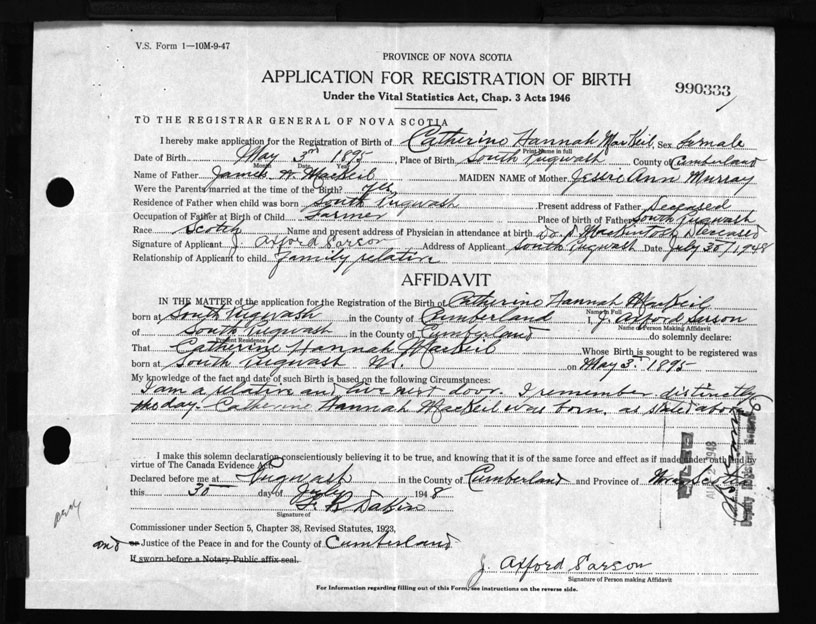 V.S. Form 1—10M-9-47
PROVINCE OF NOVA SCOTIA
APPLICATION FOR REGISTRATION OF BIRTH
990333
Under the Vital Statistics Act, Chap. 3 Acts 1946
TO THE REGISTRAR GENERAL OF NOVA SCOTIA
I hereby make application for the Registration of Birth of Catherine Hannah MacKeil Sex female
Print Name in full
Date of Birth May 3rd 1895, Place of Birth South Pugwash County of Cumberland
Month Date Year
Name of Father James W MacKeil MAIDEN NAME of Mother Jessie Ann Murray
Were the Parents married at the time of the Birth? Yes
Residence of Father when child was born South Pugwash Present address of Father Deceased
Occupation of Father at Birth of Child Farmer Place of birth of Father South Pugwash
Race Scotch Name and present address of Physician in attendance at birth Dr. MacKintosh Deceased
Signature of Applicant J. Axford Address of Applicant South Pugwash Date July 30/1948
Relationship of Applicant to child Family relative
AFFIDAVIT
IN THE MATTER of the application for the Registration of the Birth of Catherine Hannah MacKeil
Name in Full
born at South Pugwash in the County of Cumberland I, J. Axford
Name of Person Making Affidavit
of South Pugwash in the County of Cumberland do solemnly declare:
Present Residence
That Catherine Hannah MacKeil Whose Birth is sought to be registered was
born at South Pugwash N.S. on May 3rd 1895
My knowledge of the fact and date of such Birth is based on the following Circumstances:
I am a relative and live next door. I remember distinctly
the day Catherine Hannah MacKeil was born, as stated above
I make this solemn declaration conscientiously believing it to be true, and knowing that it is of the same force and effect as if made under oath and by
virtue of The Canada Evidence Act.
Declared before me at Pugwash in the County of Cumberland and Province of Nova Scotia
this 30 day of July 1948
F. B. Dakin
Signature of
Commissioner under Section 5, Chapter 38, Revised Statutes, 1923,
and or Justice of the Peace in and for the County of Cumberland
If sworn before a Notary Public affix seal.
J. Axford
Signature of Person making Affidavit
For Information regarding filling out of this Form, see instructions on the reverse side.
1948
Deputy Registrar General